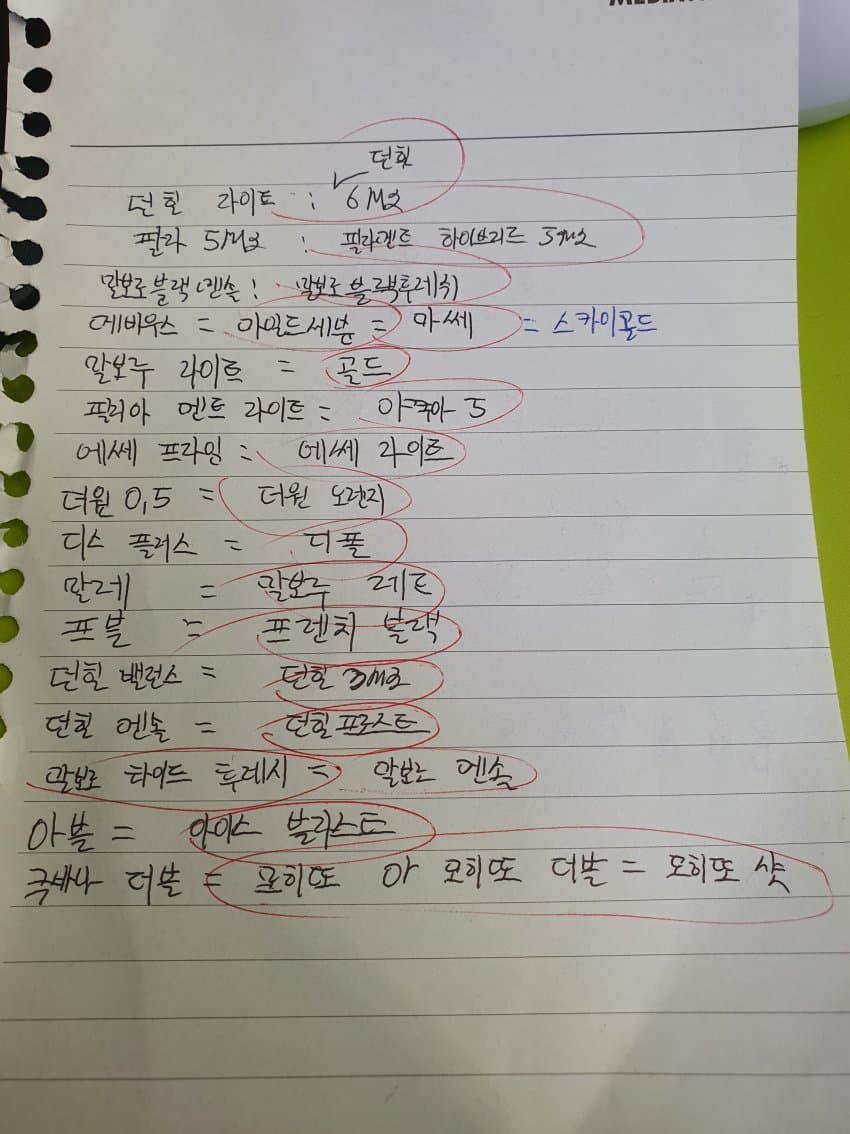 던힐
던힐 라이트 : 6Mg
팔라 5Mg : 팔라멘트 하이브리드 5mg
말보로블랙멘솔 : 말보로 블랙후레쉬
메비우스 = 마일드세븐 = 마쎄 = 스카이골드
말보루 라이트 = 골드
팔리아멘트 라이트 = 아쿠아 5
에쎄 프라임 = 에쎄 라이트
더원 0,5 = 더원 오렌지
디스 플러스 = 디플
말레 = 말보루 레드
프블 = 프렌치 블랙
던힐 밸런스 = 던힐 3Mg
던힐 멘솔 = 던힐프로스트
말보로 하이드 후레시 = 말보로 멘솔
아블 = 아이스 블라스트
쿠바나 더블 = 모히또 or 모히또 더블 = 모히또 샷